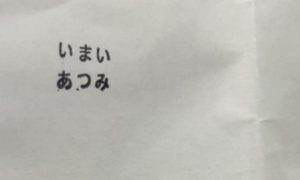 いまい
あつみ